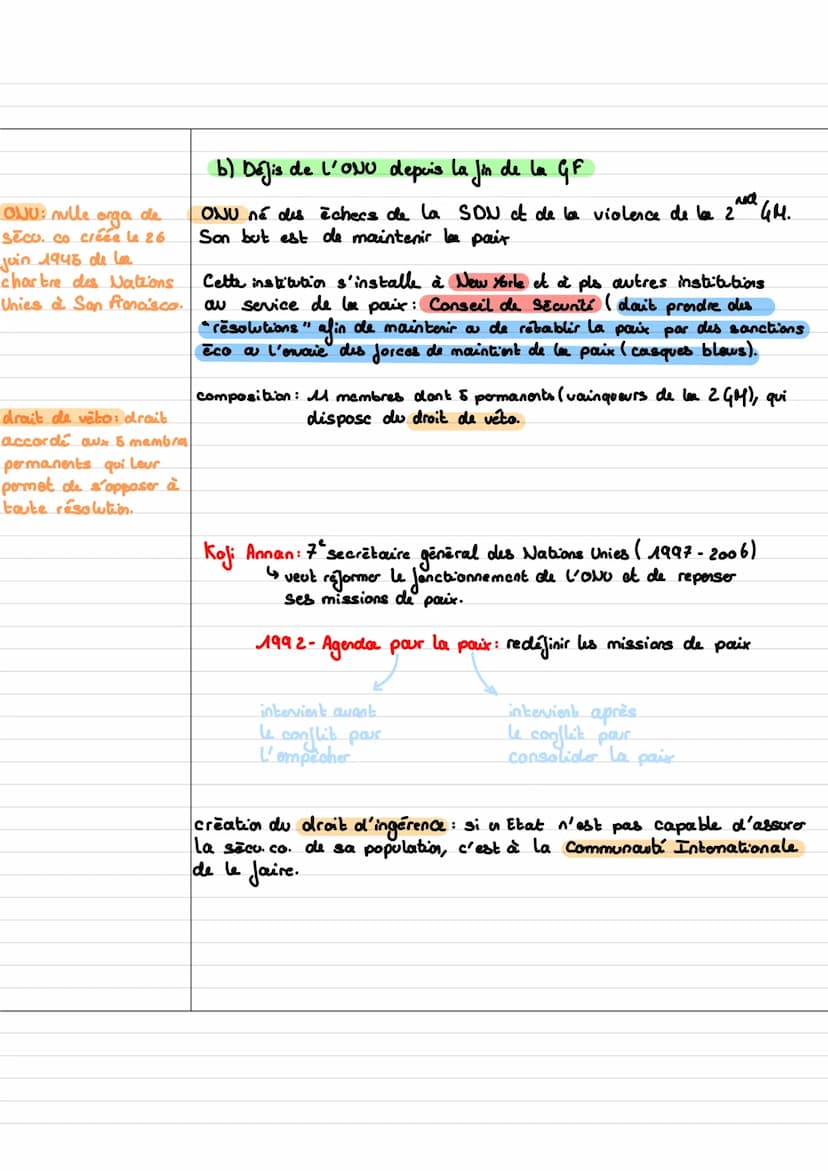 b) Défis de l'ONU depuis la fin de la GF
ONU: nvlle orga de
sécu. co créée le 26
juin 1945 de la
chartre des Nations
Unies à San Francisco.
ONU né des échecs de la SDN et de la violence de la 2nd GM.
Son but est de maintenir la paix
Cette institution s'installe à New Yorke et à pls autres institutions
au service de la paix: Conseil de Sécurité (doit prendre des
"résolutions" afin de maintenir ou de rétablir la paix par des sanctions
éco ou l'envoie des forces de maintient de la paix (casques bleus).
composition: 11 membres dont 5 permanents (vainqueurs de la 2GM), qui
dispose du droit de véto.
droit de véto: droit
accordé aux 5 membres
permanents qui leur
permet de s'opposer à
toute résolution.
Kofi Annan: 7e secrétaire général des Nations Unies (1997-2006)
↳ veut réformer le fonctionnement de l'ONU et de repenser
ses missions de paix.
1992- Agenda pour la paix: redéfinir les missions de paix
intervient avant
le conflit pour
l'empêcher
intervient après
le conflit pour
consolider la paix
création du droit d'ingérence: si un Etat n'est pas capable d'assurer
la sécu. co. de sa population, c'est à la Communauté Internationale
de le faire.